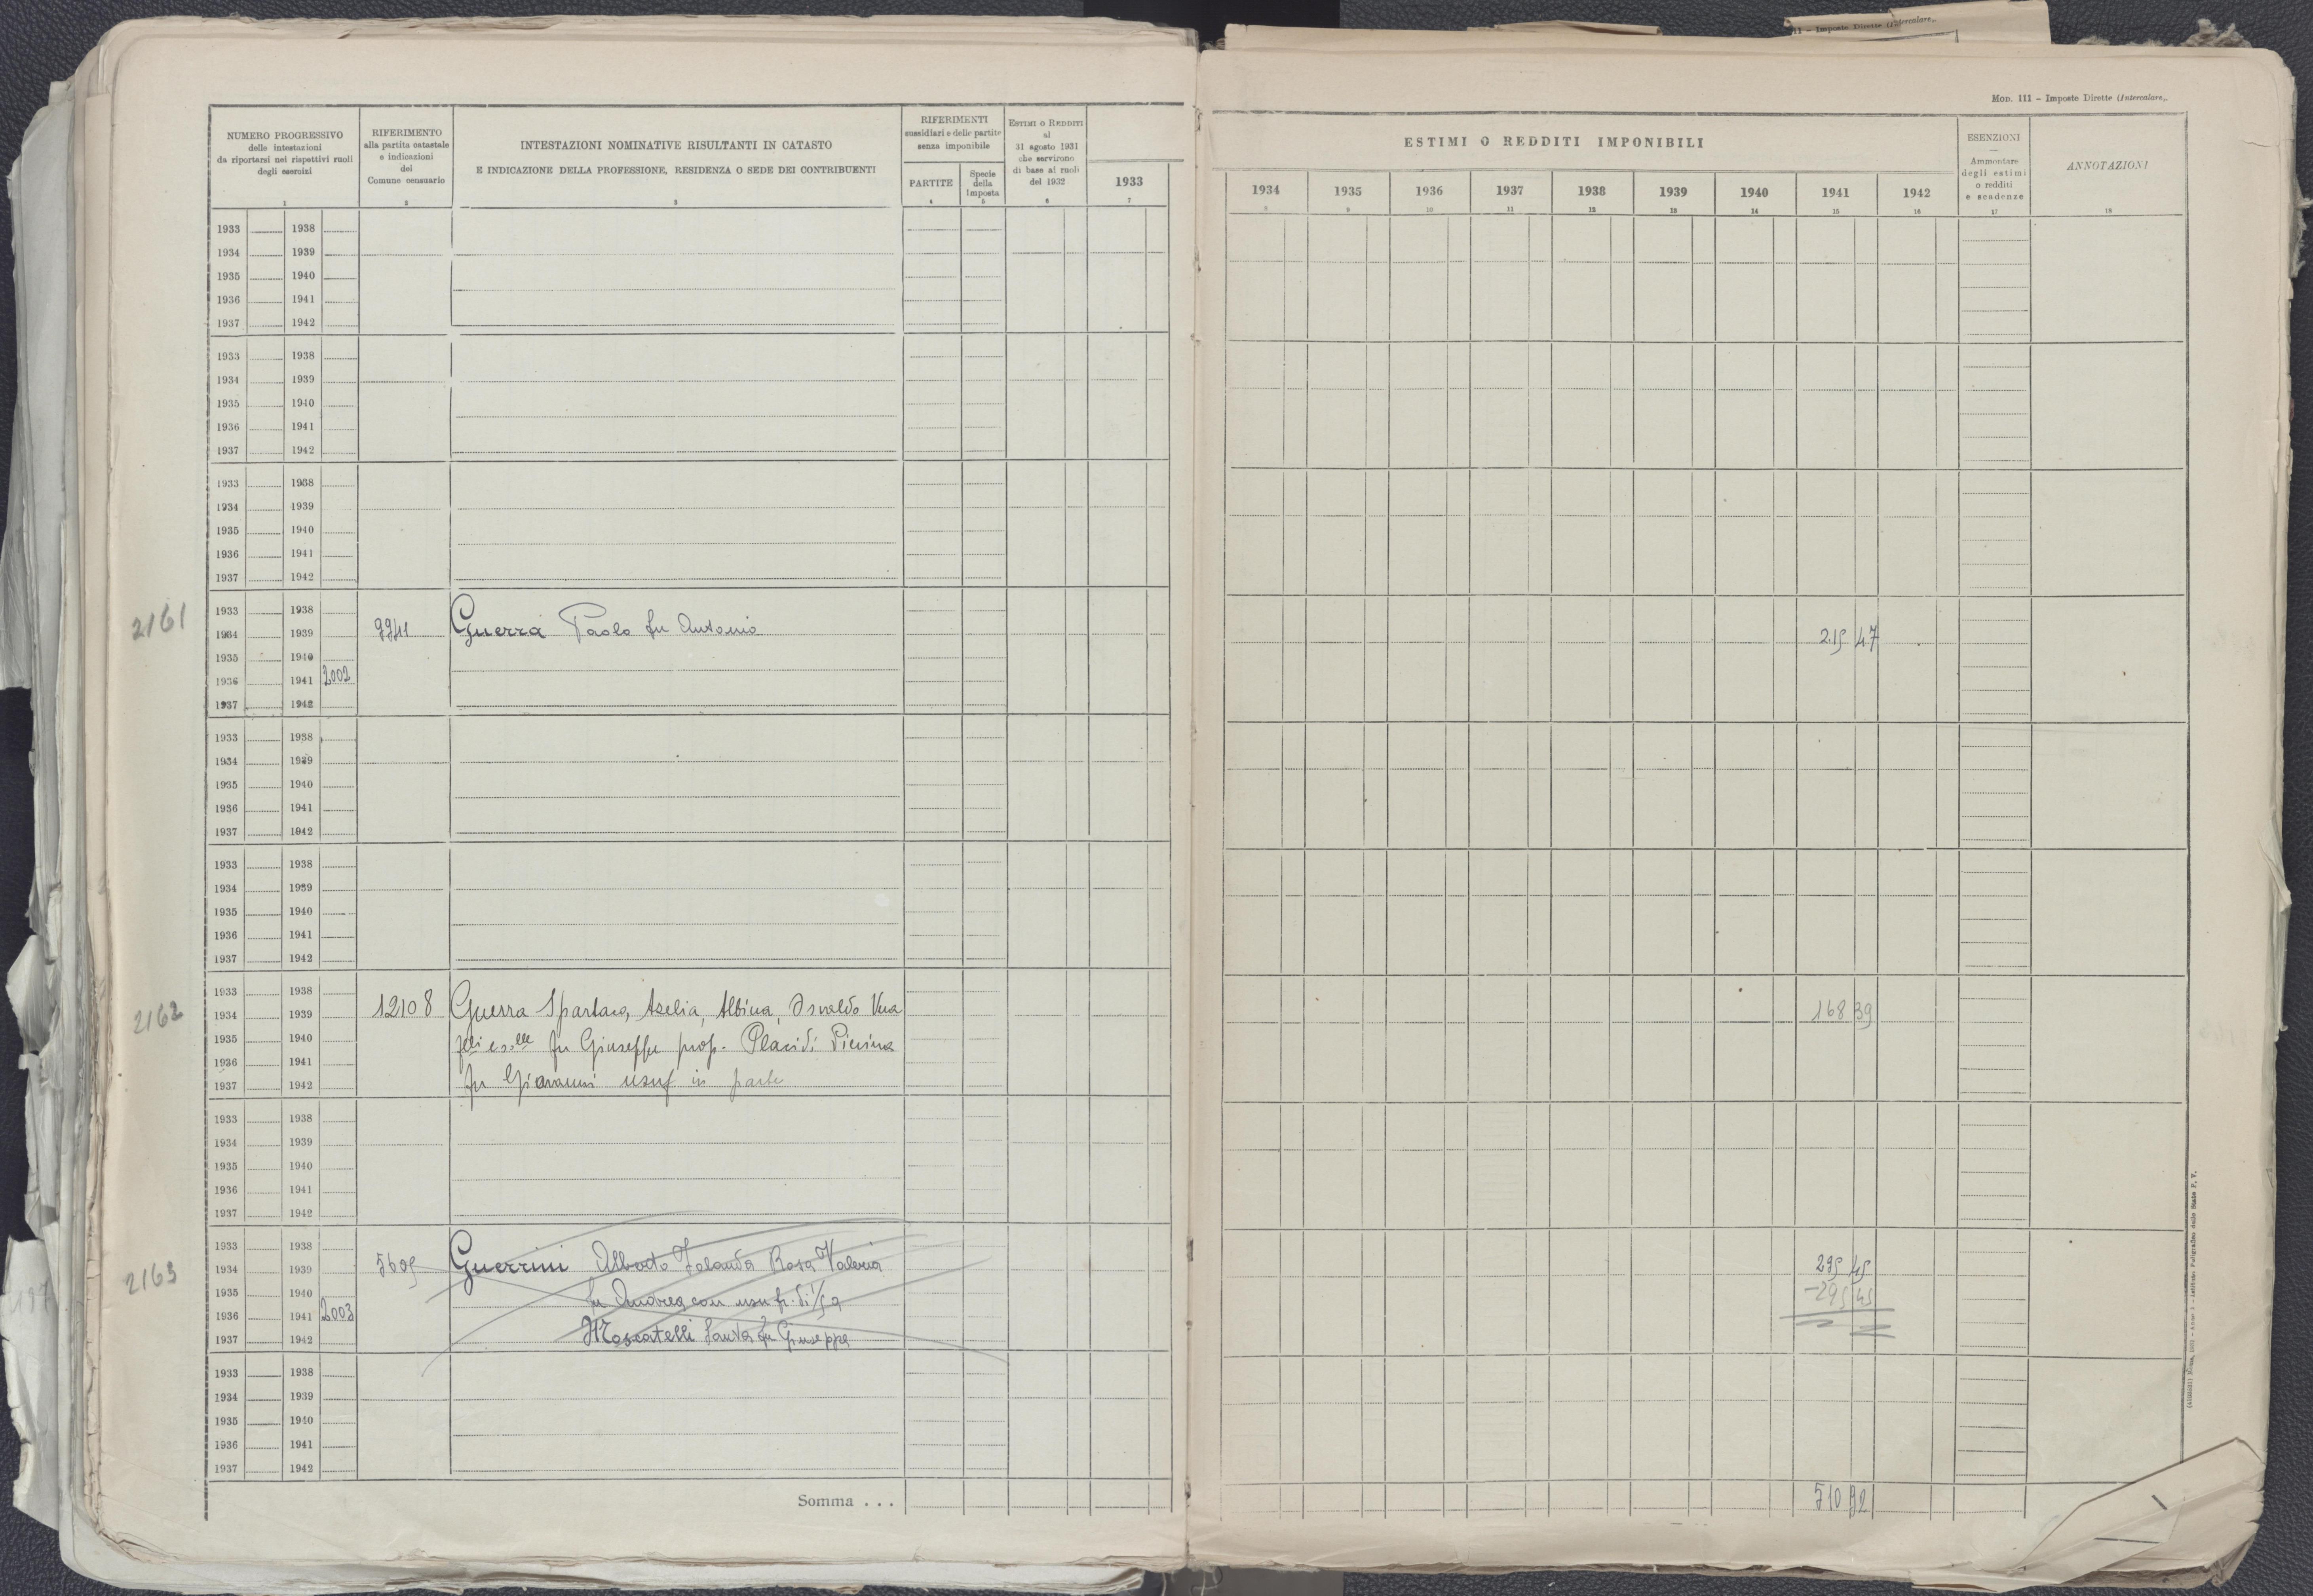 11 - Imposte Dirette (Intercalare,,
Mod. 111 - Imposte Dirette (Intercalare,,
NUMERO PROGRESSIVO
delle intestazioni
da riportarsi nei rispettivi ruoli
degli esercizi
1
RIFERIMENTO
alla partita catastale
e indicazioni
del
Comune censuario
2
INTESTAZIONI NOMINATIVE RISULTANTI IN CATASTO
E INDICAZIONE DELLA PROFESSIONE, RESIDENZA O SEDE DEI CONTRIBUENTI
3
RIFERIMENTI
sussidiari e delle partite
senza imponibile
PARTITE
4
Specie
della
Imposta
5
ESTIMI O REDDITI
al
31 agosto 1931
che servirono
di base ai ruoli
del 1932
6
1933
7
ESTIMI O REDDITI IMPONIBILI
1934 1935 1936 1937 1938 1939 1940 1941 1942
8 9 10 11 12 13 14 15 16
ESENZIONI
Ammontare
degli estimi
o redditi
e scadenze
17
ANNOTAZIONI
18
1933 1938
1934 1939
1935 1940
1936 1941
1937 1942
1933 1938
1934 1939
1935 1940
1936 1941
1937 1942
1933 1938
1934 1939
1935 1940
1936 1941
1937 1942
2161
1933 1938
1934 1939 Guerra Paolo fu Antonio 215 47
1935 1940
1936 1941 2002
1937 1942
1933 1938
1934 1939
1935 1940
1936 1941
1937 1942
1933 1938
1934 1939
1935 1940
1936 1941
1937 1942
2162
1933 1938
1934 1939 12108 Guerra Spartaco, Azelia, Albina, Osvaldo 168 39
1935 1940 fu Giuseppe prop. Placidi Pierina
1936 1941
1937 1942 fu Giovanni usuf in parte
1933 1938
1934 1939
1935 1940
1936 1941
1937 1942
2163
1933 1938
1934 1939 5605 Guerrini Alberto Jolanda Rosa Valeria 295 45
1935 1940 fu Andrea con usufr. di -295 45
1936 1941 2003
1937 1942 Moscatelli Santa fu Giuseppe
1933 1938
1934 1939
1935 1940
1936 1941
1937 1942
Somma . . . 510 92